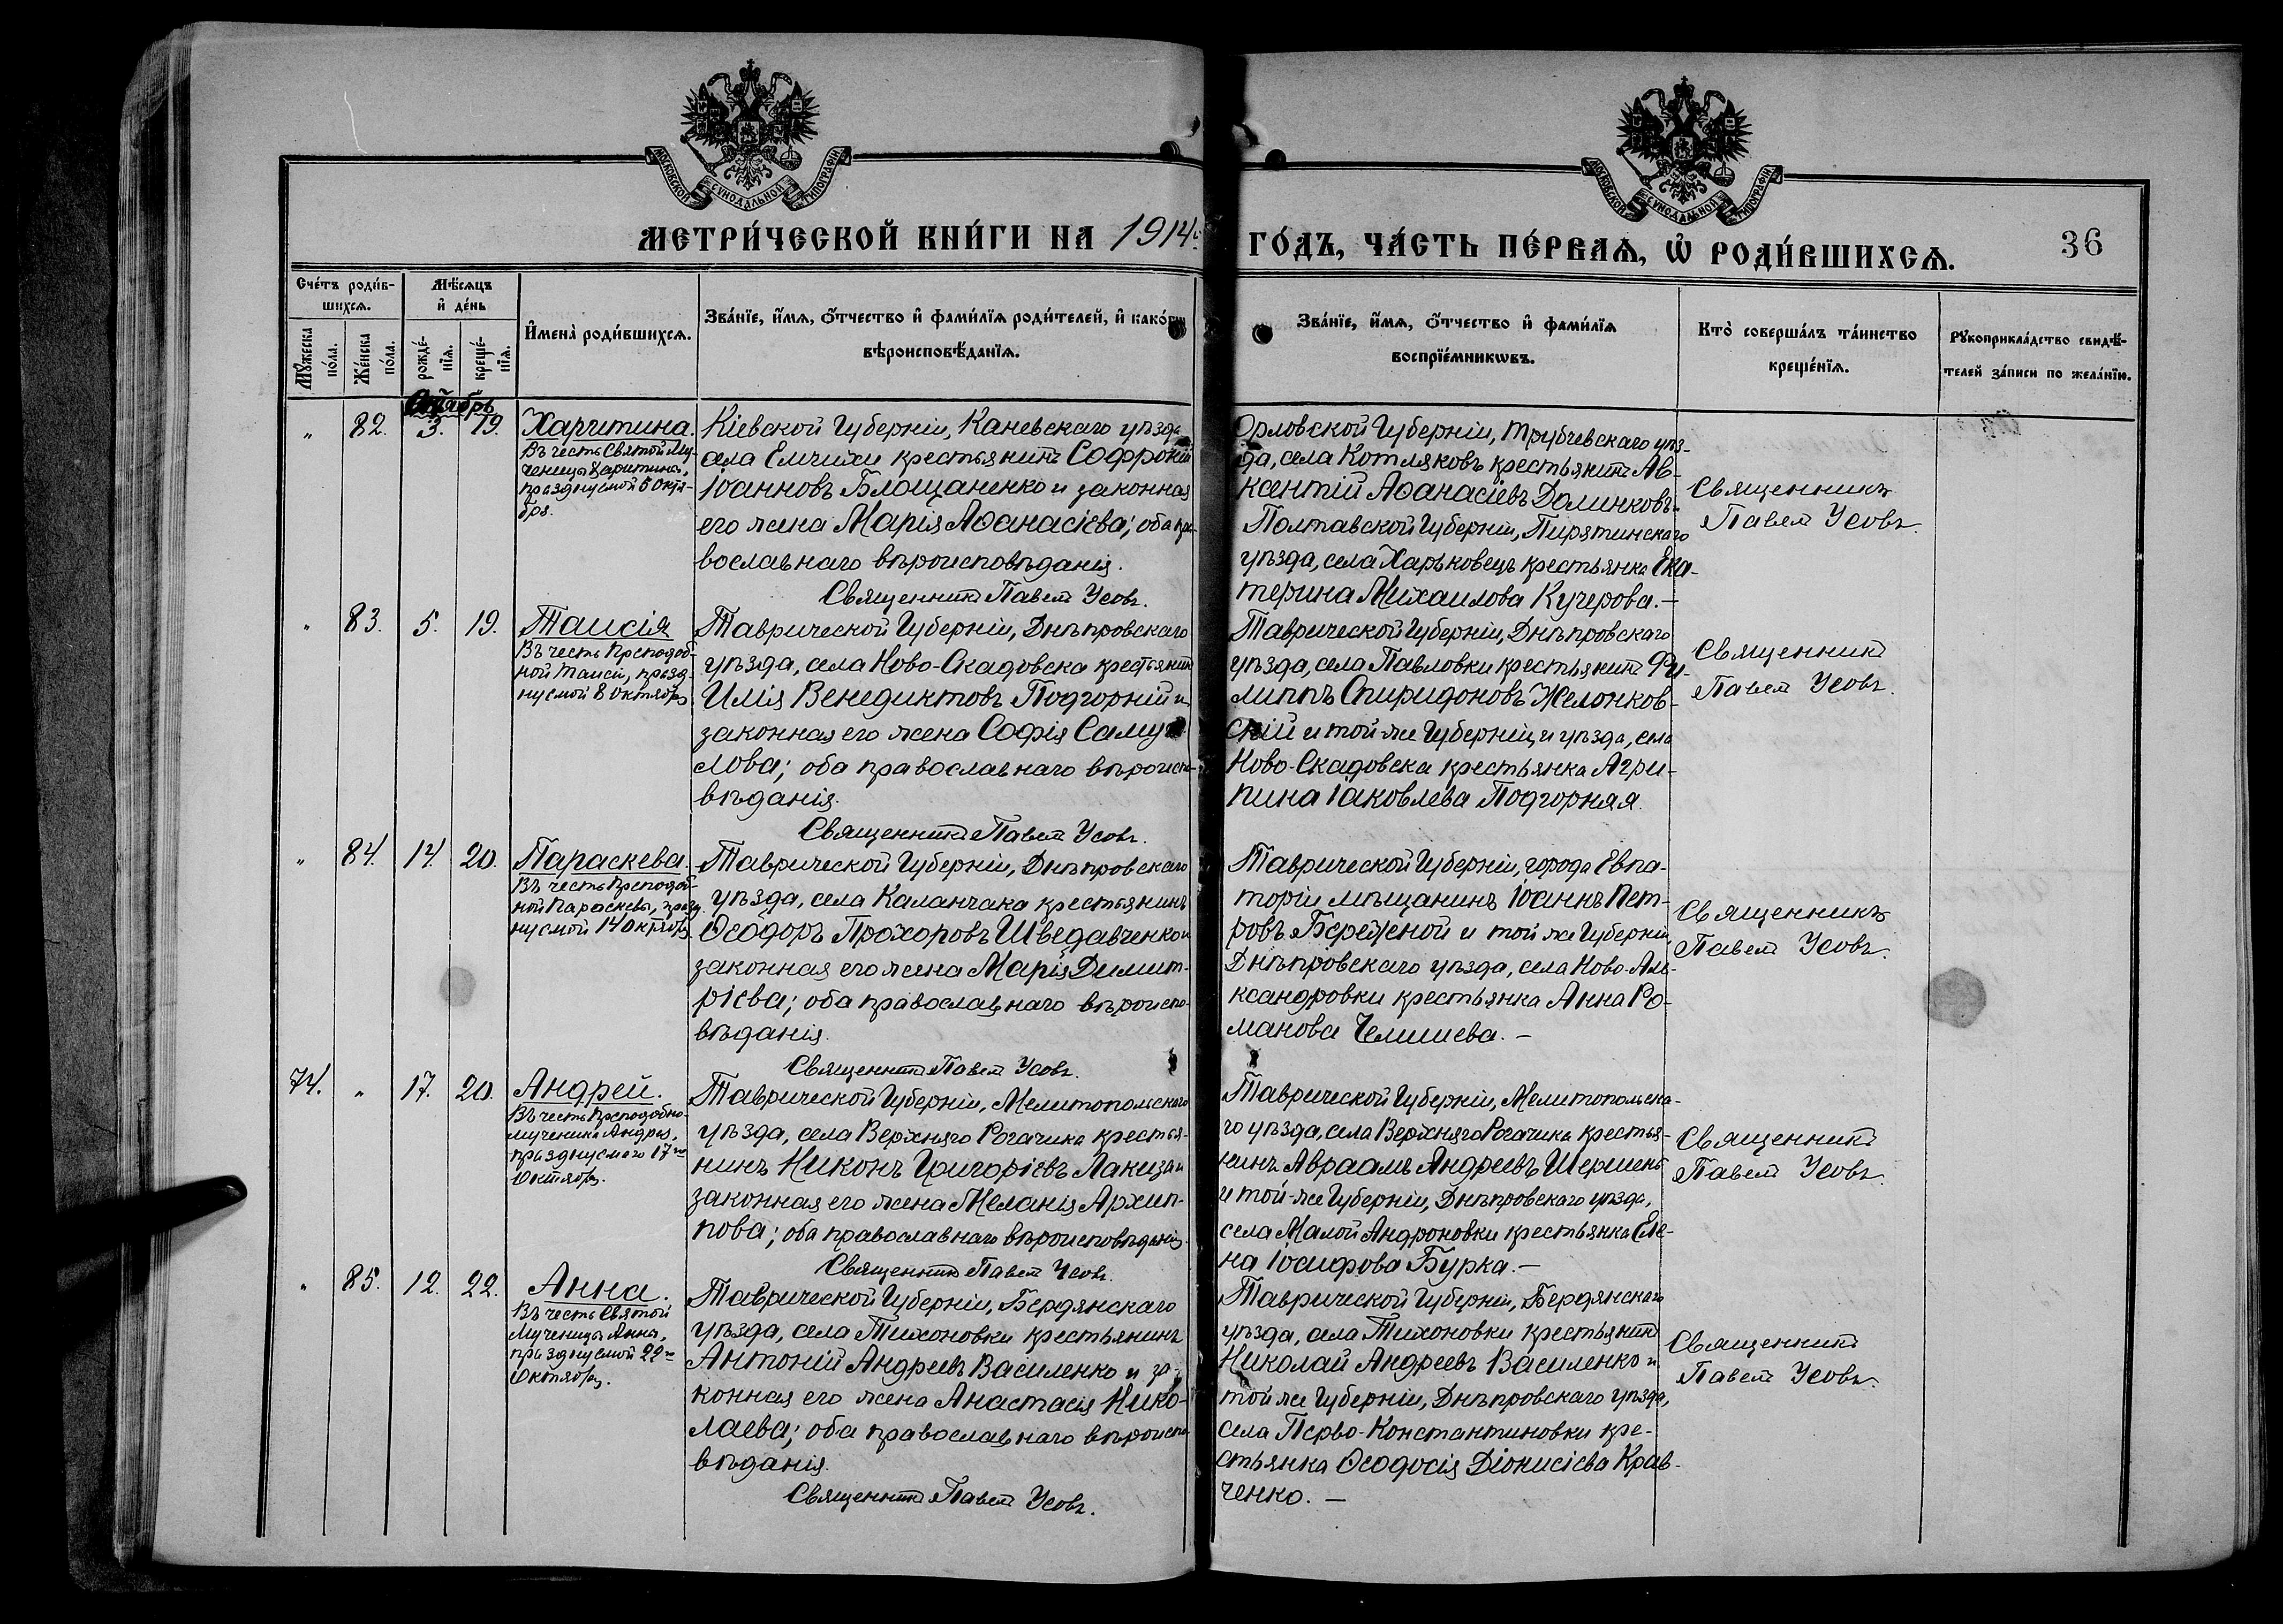 МОСКОВСКОЙ СѴНОДАЛЬНОЙ ТИПОГРАФІИ
МОСКОВСКОЙ СѴНОДАЛЬНОЙ ТИПОГРАФІИ
МЕТРИ́ЧЕСКОЙ КНИ́ГИ НА 1914
ГО́ДЪ, ЧА́СТЬ ПЕ́РВАѦ, Ѽ РОДИ́ВШИХСѦ.
36
Сче́тъ роди́в-
шихсѧ.
Мꙋ́жеска по́ла.
Же́нска по́ла.
Мѣ́сѧцъ и҆ де́нь
рожде́-нїѧ.
креще́-нїѧ.
И҆мена̀ роди́вшихсѧ.
Зва́нїе, и҆́мѧ, ѻ҆́тчество и҆ фами́лїѧ роди́телей, и҆ како́гѡ
вѣроисповѣ́данїѧ.
Зва́нїе, и҆́мѧ, ѻ҆́тчество и҆ фами́лїѧ
воспрїе́мникѡвъ.
Кто̀ соверша́лъ та́инство
креще́нїѧ.
Рꙋкоприкла́дство свидѣ́-
телей за́писи по жела́нїю.
Октябрь
" 82. 3. 19. Харитина.
Въ честь Святой Му-
ченицы Харитины,
празднуемой 5 Октя-
бря.
Кіевской Губерніи, Каневскаго уѣзда
села Емчихи крестьянинъ Софроній
Іоанновъ Блощаненко и законная
его жена Марія Аѳанасіева; оба пра-
вославнаго вѣроисповѣданія.
Священникъ Павелъ Усовъ.
Орловской Губерніи, Трубчевскаго уѣз-
да, села Котляковъ крестьянинъ Ав-
ксентій Аѳанасіевъ Долинковъ.
Полтавской Губерніи, Пирятинскаго
уѣзда, села Харьковецъ крестьянка Ека-
терина Михаилова Кучерова.—
Священникъ
Павелъ Усовъ.
" 83. 5. 19. Таисія
Въ честь Преподоб-
ной Таисіи, празд-
нуемой 8 Октября
Таврической Губерніи, Днѣпровскаго
уѣзда, села Ново-Скадовска крестьянинъ
Илія Венедиктовъ Подгорній и
законная его жена Софія Самуи-
лова; оба православнаго вѣроиспо-
вѣданія.
Священникъ Павелъ Усовъ.
Таврической Губерніи, Днѣпровскаго
уѣзда, села Павловки крестьянинъ Фи-
липпъ Спиридоновъ Желонков-
скій и той-же Губерніи, и уѣзда, села
Ново-Скадовска крестьянка Агри-
пина Іаковлева Подгорная.
Священникъ
Павелъ Усовъ.
" 84. 14. 20. Параскева.
Въ честь Преподоб-
ной Параскевы, празд-
нуемой 14 Октября.
Таврической Губерніи, Днѣпровскаго
уѣзда, села Каланчака крестьянинъ
Ѳеодоръ Прохоровъ Шведавченко и
законная его жена Марія Димит-
ріева; оба православнаго вѣроиспо-
вѣданія.
Священникъ Павелъ Усовъ.
Таврической Губерніи, города Евпа-
торіи мѣщанинъ Іоаннъ Пет-
ровъ Бережной и той же Губерніи,
Днѣпровскаго уѣзда, села Ново-Але-
ксандровки крестьянка Анна Ро-
манова Челишева.—
Священникъ
Павелъ Усовъ.
74. " 17. 20. Андрей.
Въ честь Преподобно-
мученика Андрея,
празднуемаго 17го
Октября.
Таврической Губерніи, Мелитопольскаго
уѣзда, села Верхняго Рогачика крестья-
нинъ Никонъ Григоріевъ Лакиза и
законная его жена Меланія Архип-
пова; оба православнаго вѣроисповѣданія.
Священникъ Павелъ Усовъ.
Таврической Губерніи, Мелитопольска-
го уѣзда, села Верхняго Рогачика крестья-
нинъ Авраамъ Андреевъ Шершень
и той-же Губерніи, Днѣпровскаго уѣзда,
села Малой Андроновки крестьянка Еле-
на Іосифова Бурка.—
Священникъ
Павелъ Усовъ.
" 85. 12. 22. Анна.
Въ честь Святой
Мученицы Анны,
празднуемой 22го
Октября.
Таврической Губерніи, Бердянскаго
уѣзда, села Тихоновки крестьянинъ
Антоній Андреевъ Василенко и за-
конная его жена Анастасія Нико-
лаева; оба православнаго вѣроиспо-
вѣданія.
Священникъ Павелъ Усовъ.
Таврической Губерніи, Бердянскаго
уѣзда, села Тихоновки крестьянинъ
Николай Андреевъ Василенко и
той же Губерніи, Днѣпровскаго уѣзда,
села Перво-Константиновки кре-
стьянка Ѳеодосія Діонисіева Крав-
ченко.—
Священникъ
Павелъ Усовъ.